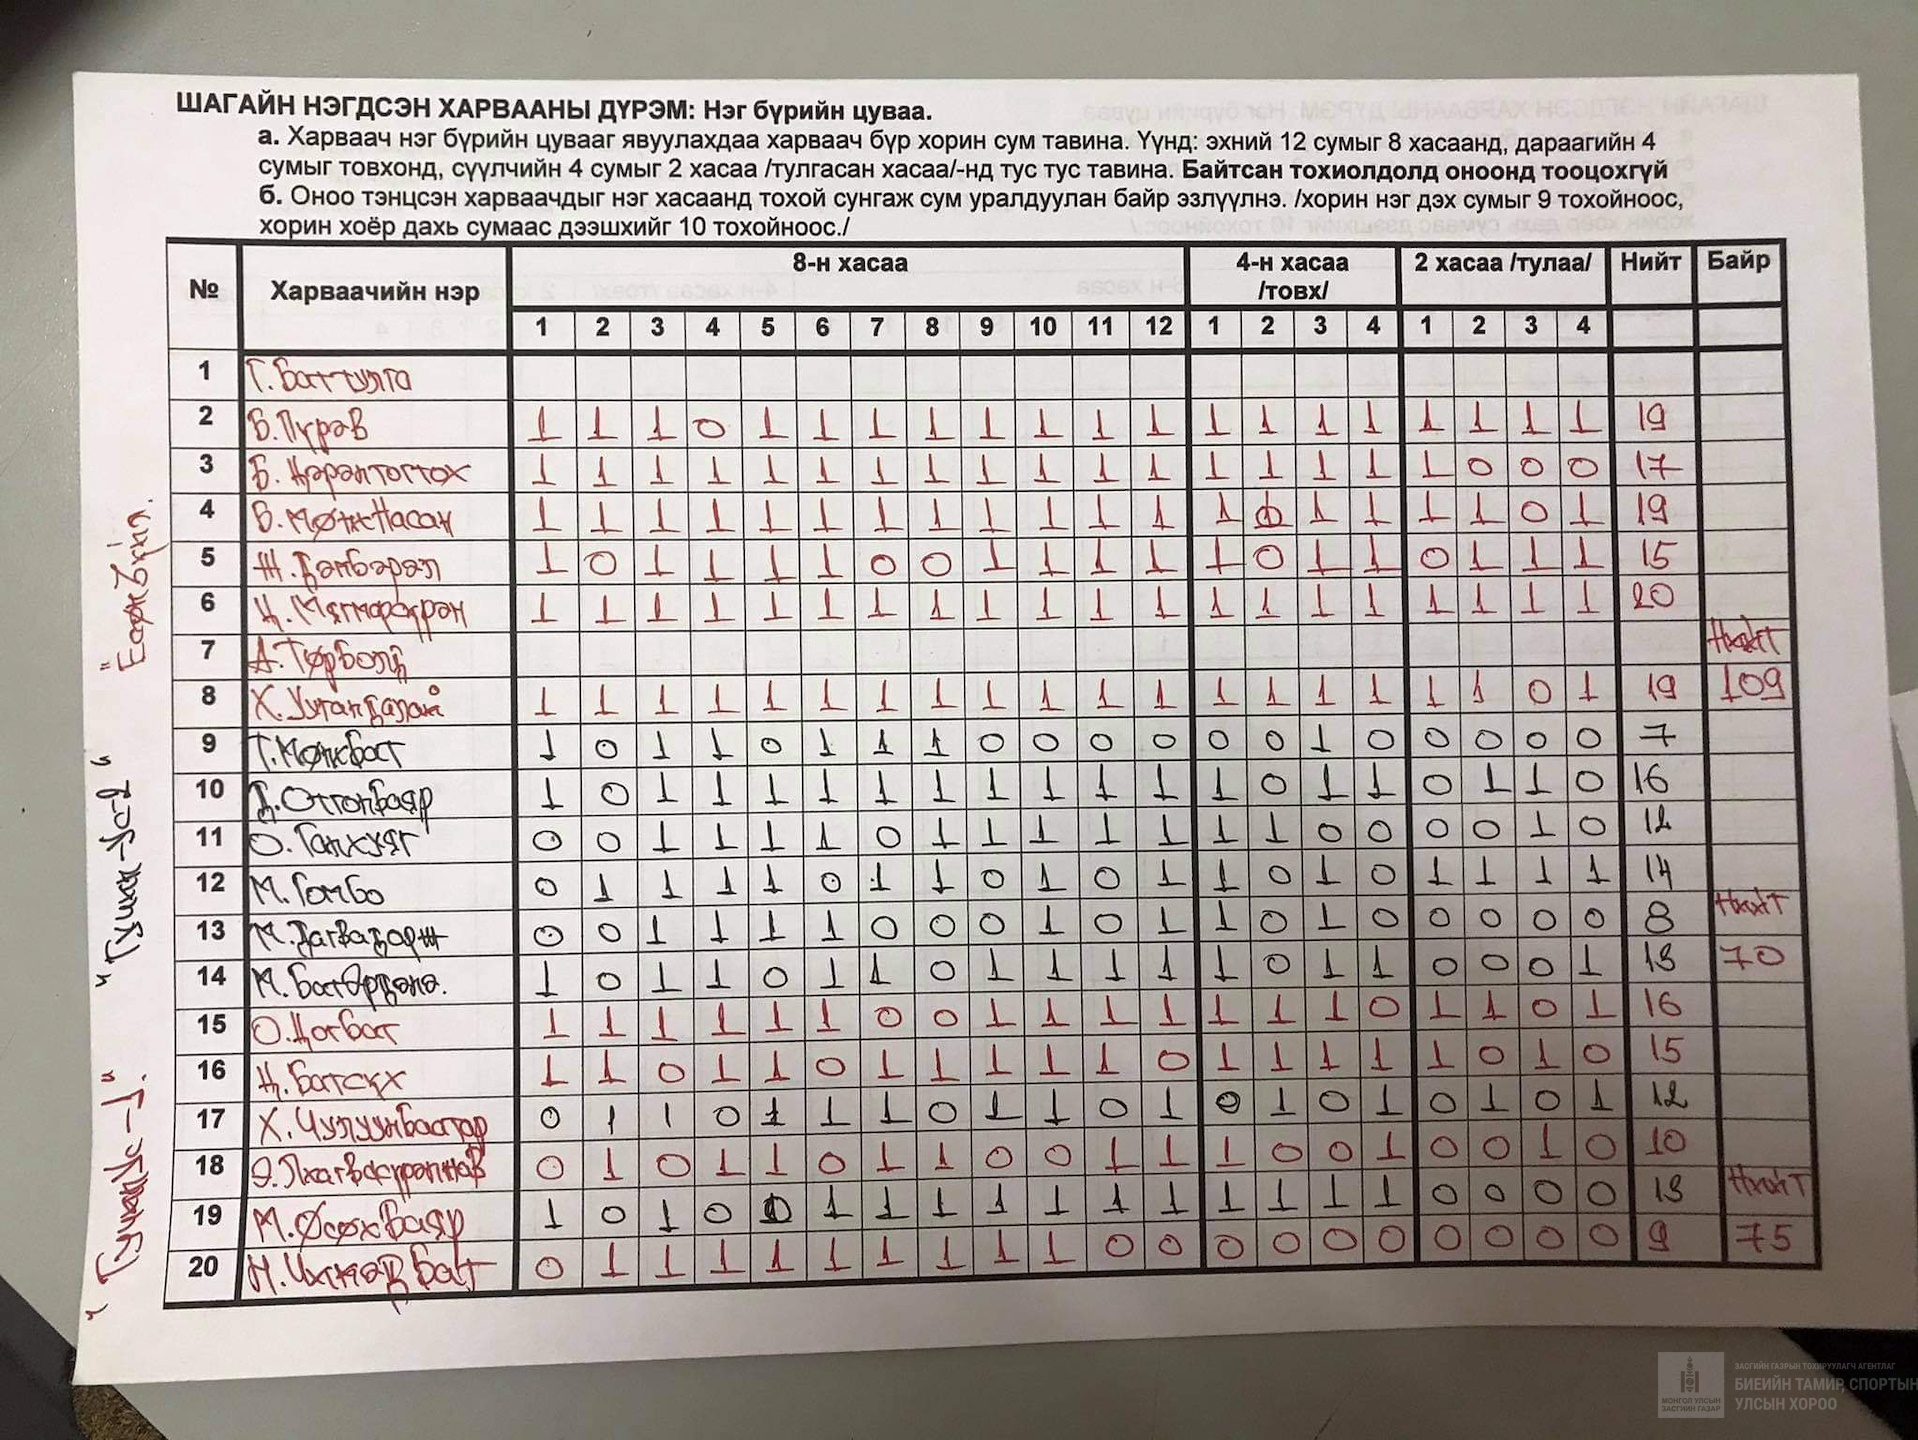 ШАГАЙН НЭГДСЭН ХАРВААНЫ ДҮРЭМ: Нэг бүрийн цуваа.
а. Харваач нэг бүрийн цувааг явуулахдаа харваач бүр хорин сум тавина. Үүнд: эхний 12 сумыг 8 хасаанд, дараагийн 4
сумыг товхонд, сүүлчийн 4 сумыг 2 хасаа /тулгасан хасаа/-нд тус тус тавина. Байтсан тохиолдолд оноонд тооцохгүй
б. Оноо тэнцсэн харваачдыг нэг хасаанд тохой сунгаж сум уралдуулан байр эзлүүлнэ. /хорин нэг дэх сумыг 9 тохойноос,
хорин хоёр дахь сумаас дээшхийг 10 тохойноос./
№ Харваачийн нэр 8-н хасаа 4-н хасаа /товх/ 2 хасаа /тулаа/ Нийт Байр
1 2 3 4 5 6 7 8 9 10 11 12 1 2 3 4 1 2 3 4
1 Г. Баттулга
2 Б. Пүрэв 1 1 1 0 1 1 1 1 1 1 1 1 1 1 1 1 1 1 1 1 19
3 Б. Цэрэнтогтох 1 1 1 1 1 1 1 1 1 1 1 1 1 1 1 1 1 0 0 0 17
4 Б. Мөнхнасан 1 1 1 1 1 1 1 1 1 1 1 1 1 1 1 1 1 1 0 1 19
5 Ж. Дэмбэрэл 1 0 1 1 1 1 0 0 1 1 1 1 1 0 1 1 0 1 1 1 15
6 Ц. Мягмарсүрэн 1 1 1 1 1 1 1 1 1 1 1 1 1 1 1 1 1 1 1 1 20
7 А. Төрболд
8 Х. Уугандалай 1 1 1 1 1 1 1 1 1 1 1 1 1 1 1 1 1 1 0 1 19 109
9 Т. Мөнхбат 1 0 1 1 0 1 1 1 0 0 0 0 0 0 1 0 0 0 0 0 7
10 Д. Отгонбаяр 1 0 1 1 1 1 1 1 1 1 1 1 1 0 1 1 0 1 1 0 16
11 О. Ганхуяг 0 0 1 1 1 1 0 1 1 1 1 1 1 1 0 0 0 0 1 0 12
12 М. Гомбо 0 1 1 1 1 0 1 1 0 1 0 1 1 0 1 0 1 1 1 1 14
13 М. Дагвадорж 0 0 1 1 1 1 0 0 0 1 0 1 1 0 1 0 0 0 0 0 8
14 М. Батэрдэнэ. 1 0 1 1 0 1 1 0 1 1 1 1 1 0 1 1 0 0 0 1 13 70
15 О. Цогбат 1 1 1 1 1 1 0 0 1 1 1 1 1 1 1 0 1 1 0 1 16
16 Ц. Батсүх 1 1 0 1 1 0 1 1 1 1 1 0 1 1 1 1 1 0 1 0 15
17 Х. Чулуунбаатар 0 1 1 0 1 1 1 0 1 1 0 1 0 1 0 1 0 1 0 1 12
18 Э. Лхагвасүрэнжав 0 1 0 1 1 0 1 1 0 0 1 1 1 0 0 1 0 0 1 0 10
19 М. Өсөхбаяр 1 0 1 0 1 1 1 1 1 1 1 1 1 1 1 1 0 0 0 0 13
20 Н. Ихмэдбат 0 1 1 1 1 1 1 1 1 1 0 0 0 0 0 0 0 0 0 0 9 75
ЗАСГИЙН ГАЗРЫН ТОХИРУУЛАГЧ АГЕНТЛАГ
БИЕИЙН ТАМИР, СПОРТЫН
УЛСЫН ХОРОО
МОНГОЛ УЛСЫН
ЗАСГИЙН ГАЗАР